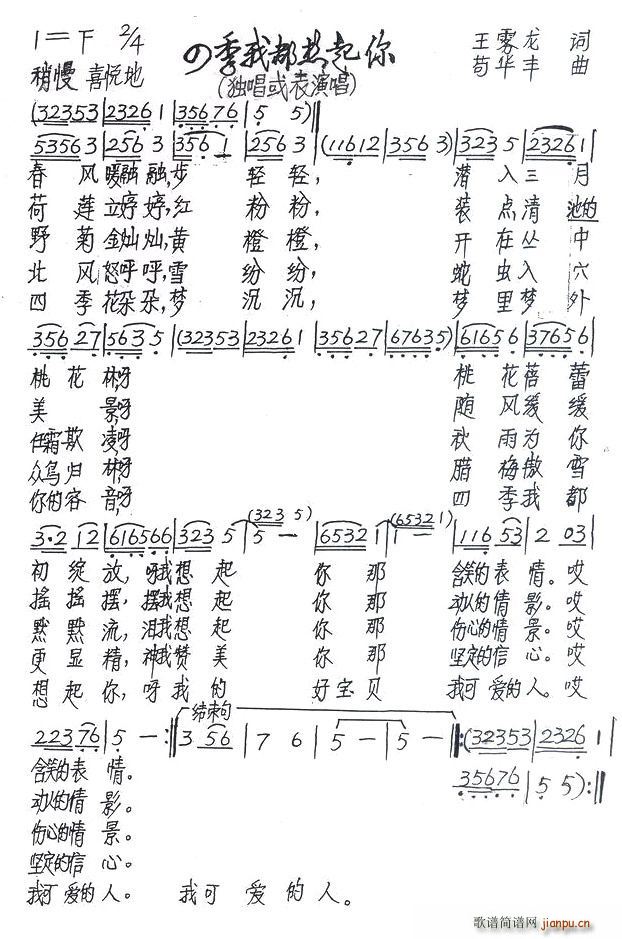 1=下 2/4
四季我都想起你
王雾龙 词
稍慢 喜悦地
(独唱或表演唱)
苟华丰 曲
(32353|23261|35676|5 5)‖
53563|2563|3561|2563|(11612|3563)|3235|23261|
春 风暖融融,步 轻 轻, 潜 入三 月
荷 莲立婷婷,红 粉 粉, 装 点清 池的
野 菊金灿灿,黄 橙 橙, 开 在丛 中
北 风怒呼呼,雪 纷 纷, 蛇 虫入 穴
四 季花朵朵,梦 沉 沉, 梦 里梦 外
35627|5635|(32353|23261|35627|67635)|61656|37656|
桃 花 林呀 桃 花蓓 蕾
美 景呀 随 风缓 缓
任霜欺 凌呀 秋 雨为 你
众鸟归 林呀 腊 梅傲 雪
你的容 音呀 四 季我 都
(323 5) (6532 1)
3·2 12|61656 6|323 5|5 —|6532 1|1 —|116 53|2 03|
初 绽 放,呀我想 起 你 那 含笑的表 情。哎
摇 摇 摆,摆我想 起 你 那 动人的情 影。哎
黙 黙 流,泪我想 起 你 那 伤心的情 景。哎
更 显 精,神我赞 美 你 那 坚定的信 心。哎
想 起 你,呀我 的 好宝贝 我可爱的人。哎
结束句
22376|5 —:‖3 56|7 6|5 —|5 —‖:(32353|23261|
含笑的表 情。
35676|5 5):‖
动人的情 影。
伤心的情 景。
坚定的信 心。
我可爱的人。 我可 爱的人。
歌谱简谱网
jianpu.cn